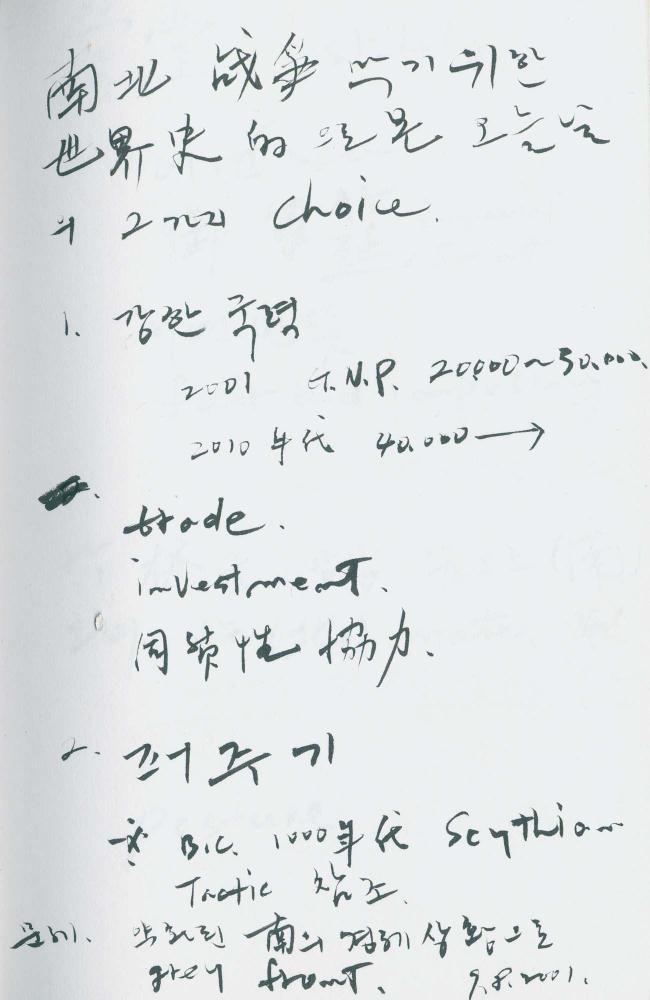 南北 战爭 막기 위한
世界史 的 으로 본 오늘날
의 2가지 choice.
1. 강한 국력
2001 G.N.P. 20,000~30,000.
2010 年代 40,000→
trade.
investment.
同質性 協力.
2. 퍼주기
※ B.C. 1000年代 Scythian
Tactic 참조.
문제. 약화된 南의 경제 상황으로
grey front. 9.8.2001.